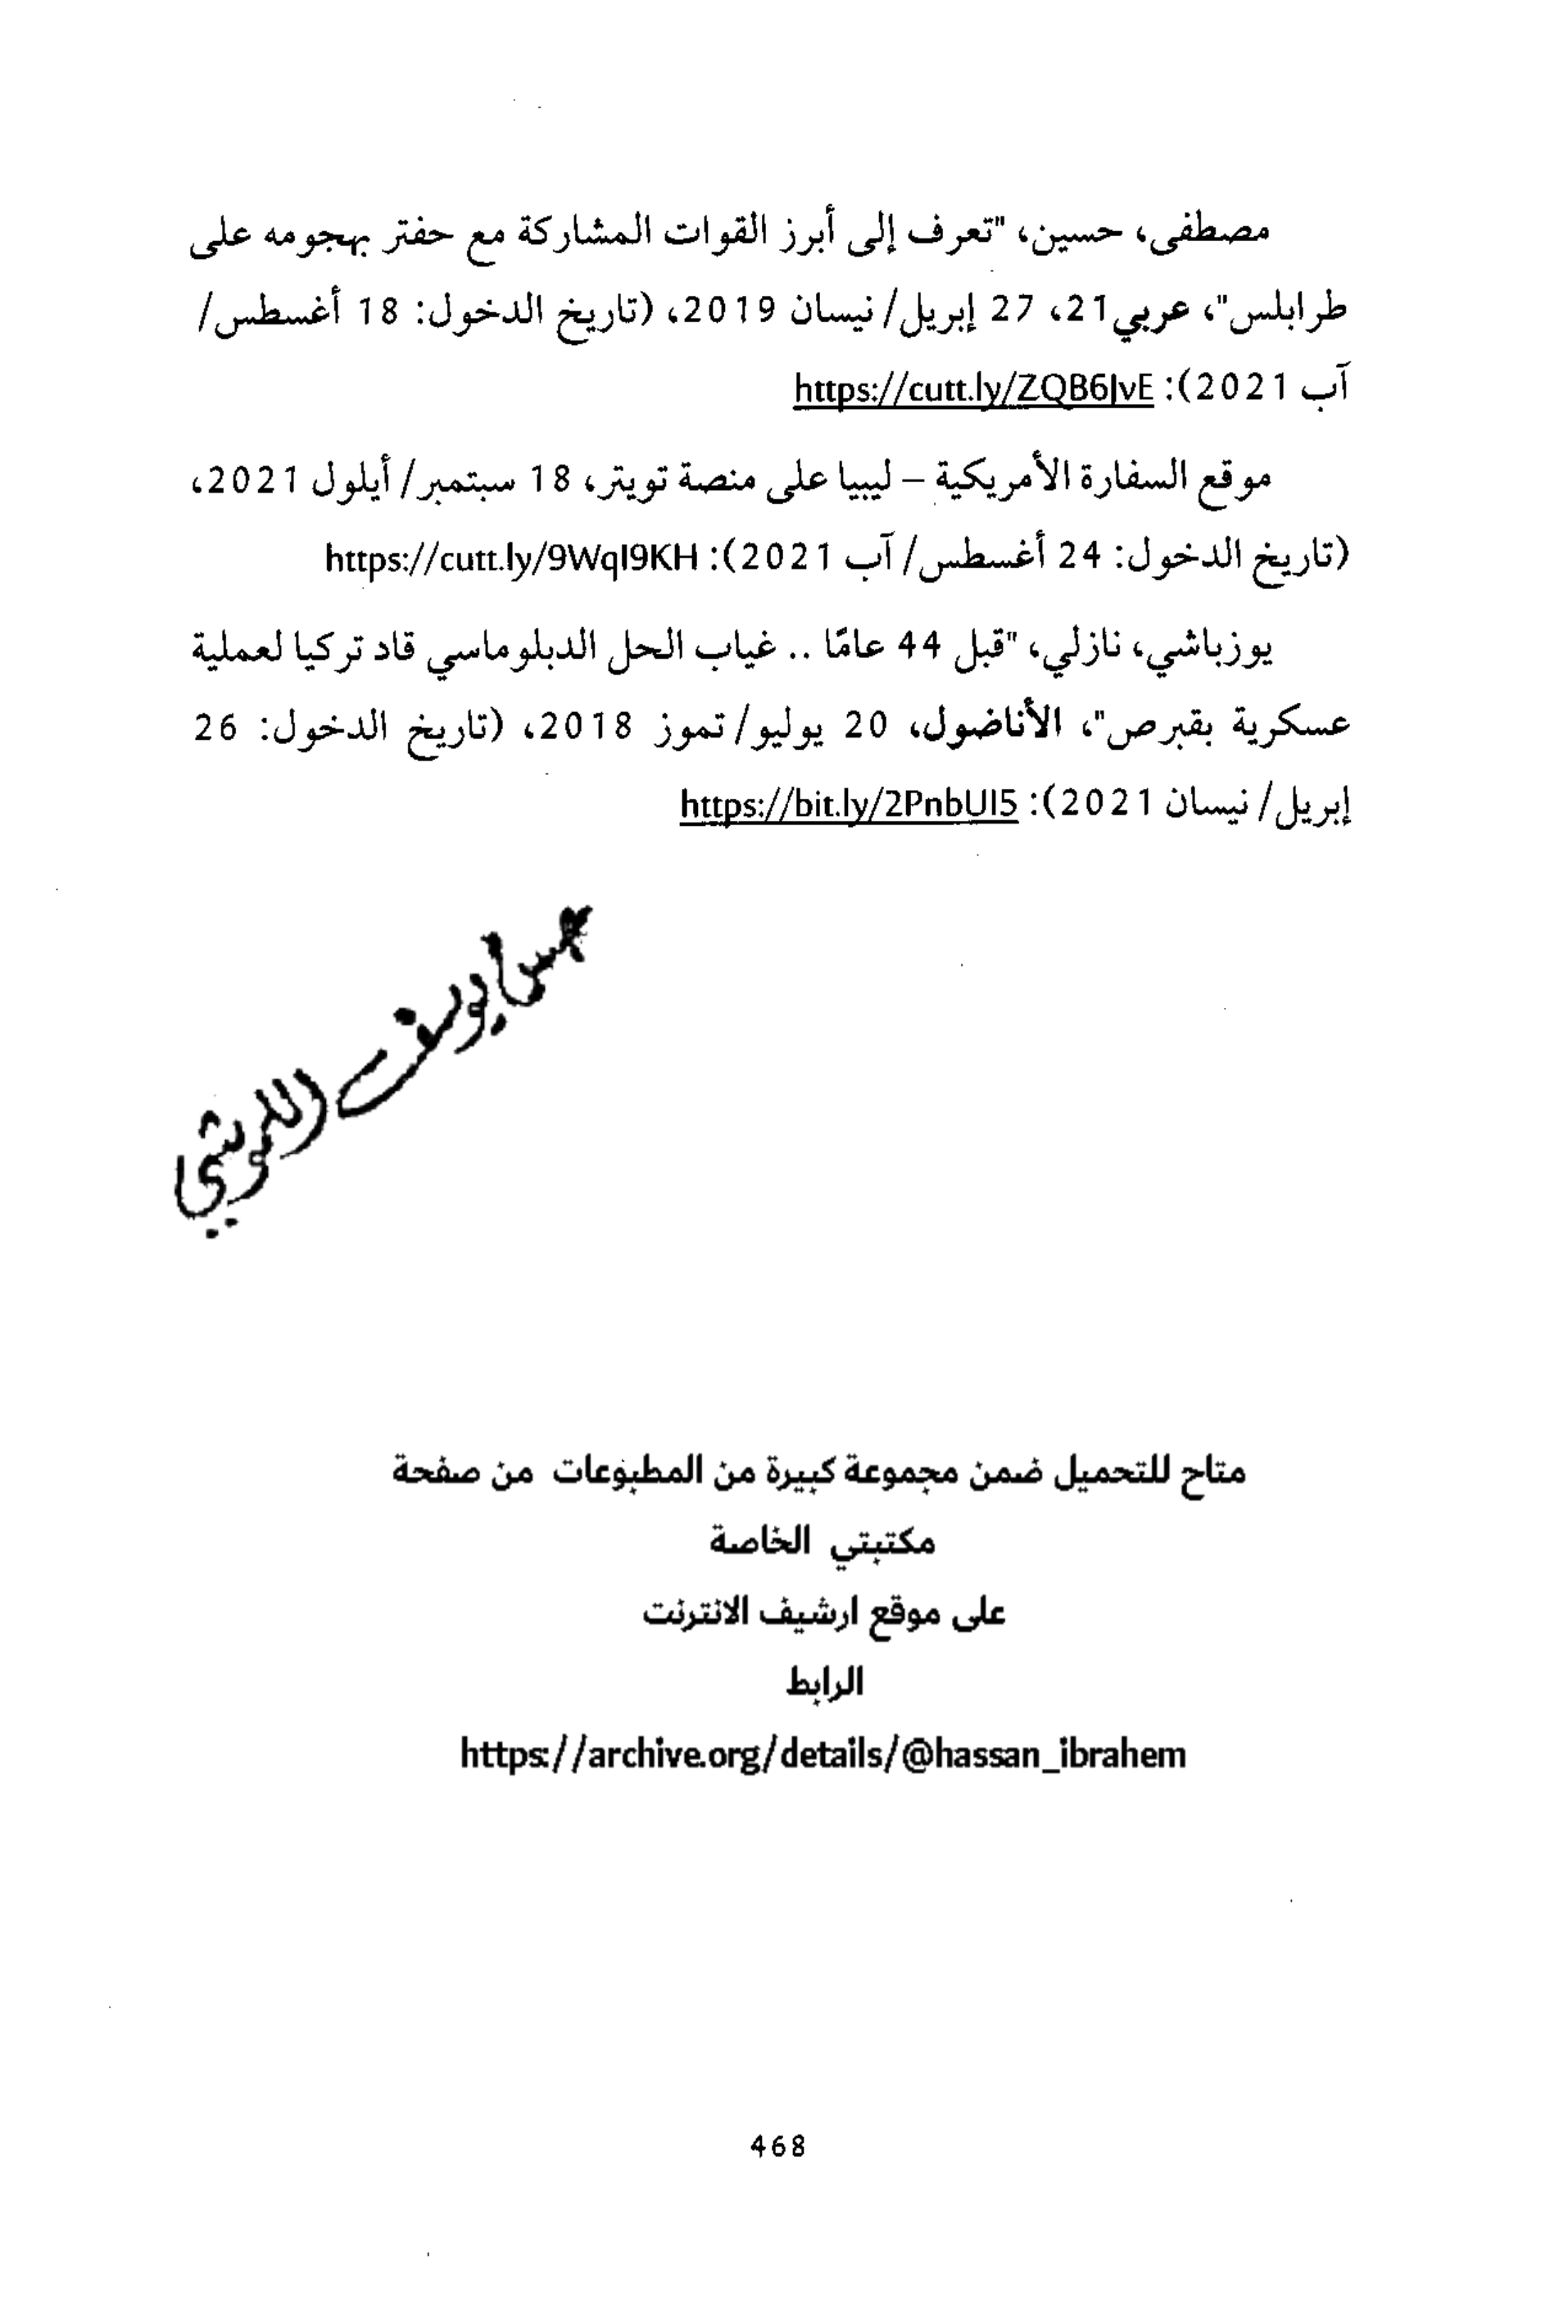 مصطفى، حسين، "تعرف إلى أبرز القوات المشاركة مع حفتر بهجومه على
طرابلس"، عربي21، 27 إبريل/ نيسان 2019، (تاريخ الدخول: 18 أغسطس/
آب 2021): https://cutt.ly/ZQB6JvE
موقع السفارة الأمريكية – ليبيا على منصة تويتر، 18 سبتمبر/ أيلول 2021،
(تاريخ الدخول: 24 أغسطس/ آب 2021): https://cutt.ly/9WqI9KH
يوزباشي، نازلي، "قبل 44 عامًا .. غياب الحل الدبلوماسي قاد تركيا لعملية
عسكرية بقبرص"، الأناضول، 20 يوليو/ تموز 2018، (تاريخ الدخول: 26
إبريل/ نيسان 2021): https://bit.ly/2PnbUI5
يوسف
متاح للتحميل ضمن مجموعة كبيرة من المطبوعات من صفحة
مكتبتي الخاصة
على موقع ارشيف الانترنت
الرابط
https://archive.org/details/@hassan_ibrahem
468